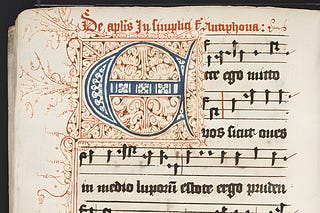 De aplis In simplici f Antiphona:
Ecce ego mitto
vos sicut oues
in medio luporū estote ergo pruden